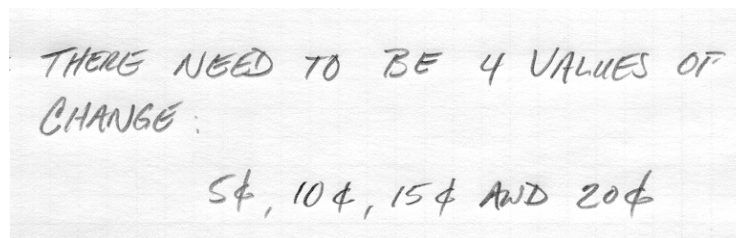 THERE NEED TO BE 4 VALUES OF
CHANGE:
5¢, 10¢, 15¢ AND 20¢